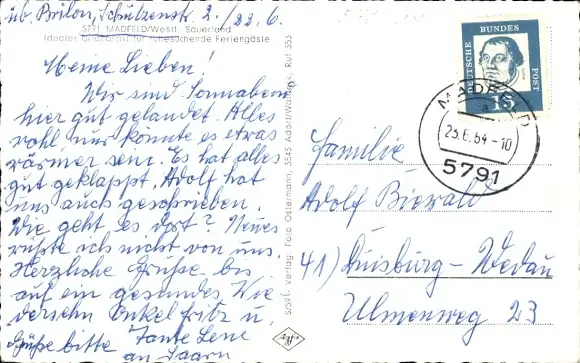 üb. Brilon, Schulzenstr. 2. / 22.6.
5791 MADFELD/Westf. Sauerland
Idealer für ruhesuchende Feriengäste
Meine Lieben!
Wir sind Sonnabend
hier gut gelandet. Alles
wohl nur könnte es etwas
wärmer sein. Es hat alles
gut geklappt, Adolf hat
uns auch geschrieben.
Wie geht es dort? Neues
wüßte ich nicht von uns.
Herzliche Grüße bis
auf ein gesundes Wie
dersehn Onkel Fritz u.
Tante Leni
Grüße bitte
an Saarn
S/591 Verlag: Foto Ostermann, 3545 Adorf/Waldeck, Ruf 355
DEUTSCHE BUNDES POST
15
MADFELD
a
23.6.64-10
5791
Familie
Adolf Biewald
41) Duisburg-Wedau
Ulmenweg 23